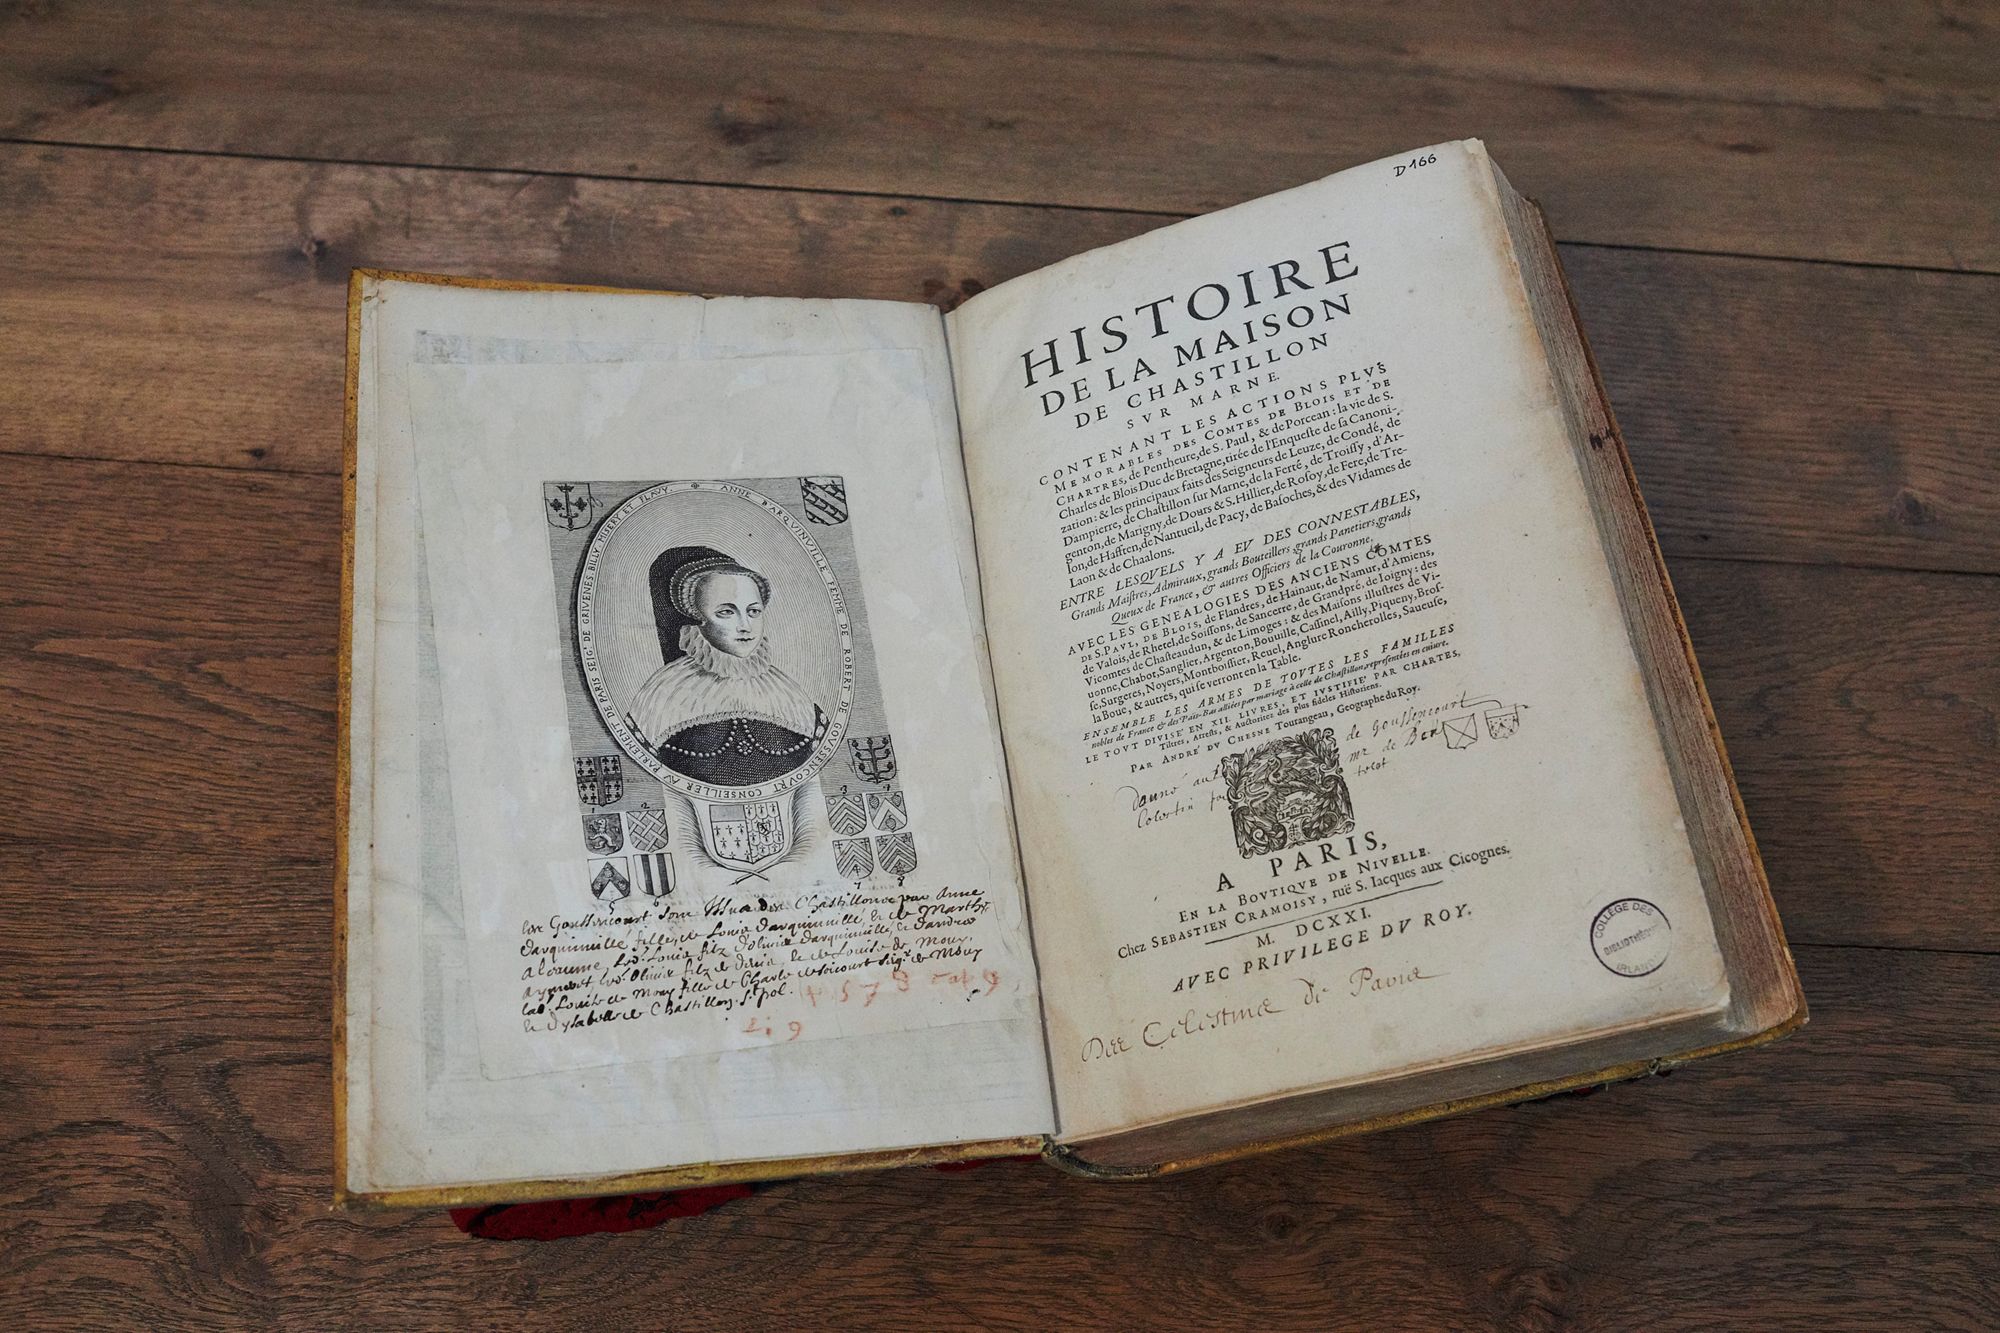 ANNE BARQVINVILLE FEMME DE ROBERT DE GOVSSENCOVRT CONSEILLER AV PARLEMENT DE PARIS SEIG.R DE GRIVENES BILLY MISERY ET FLAVY.
1
2
3
5
6
7
8
fille de Louis
Chastillon St pol.
D 166
HISTOIRE
DE LA MAISON
DE CHASTILLON
SVR MARNE.
CONTENANT LES ACTIONS PLVS
MEMORABLES DES COMTES DE BLOIS ET DE
CHARTRES, de Pentheure, de S. Paul, & de Porcean: la vie de S.
Charles de Blois Duc de Bretagne, tirée de l'Enqueste de sa Canoni-
zation: & les principaux faits des Seigneurs de Leuze, de Condé, de
Dampierre, de Chastillon sur Marne, de la Ferté, de Troissy, d'Ar-
genton, de Marigny, de Dours & S. Hillier, de Rosoy, de Fere, de Tre-
lon, de Hafften, de Nantueil, de Pacy, de Basoches, & des Vidames de
Laon & de Chaalons.
ENTRE LESQVELS Y A EV DES CONNESTABLES,
Grands Maistres, Admiraux, grands Bouteillers, grands Panetiers, grands
Queux de France, & autres Officiers de la Couronne.
AVEC LES GENEALOGIES DES ANCIENS COMTES
DE S. PAVL, DE BLOIS, de Flandres, de Hainaut, de Namur, d'Amiens,
de Valois, de Rhetel, de Soissons, de Sancerre, de Grandpré, de Ioigny: des
Vicomtes de Chasteaudun, & de Limoges: & des Maisons illustres de Vi-
uonne, Chabot, Sanglier, Argenton, Bouuille, Cassinel, Ailly, Piqueny, Bros-
se, Surgeres, Noyers, Montboissier, Reuel, Anglure Roncherolles, Saueuse,
la Boue, & autres, qui se verront en la Table.
ENSEMBLE LES ARMES DE TOVTES LES FAMILLES
nobles de France & des Païs-Bas alliées par mariage à celle de Chastillon, representées en cuiure.
LE TOVT DIVISE' EN XII. LIVRES, ET IVSTIFIE' PAR CHARTES,
Tiltres, Arrests, & Auctoritez des plus fideles Historiens.
PAR ANDRE' DV CHESNE Tourangeau, Geographe du Roy.
de Goussencourt
mr de
Donné
Celestin
A PARIS,
EN LA BOVTIQVE DE NIVELLE.
Chez SEBASTIEN CRAMOISY, ruë S. Iacques aux Cicognes.
M. DCXXI.
AVEC PRIVILEGE DV ROY.
COLLÈGE DES
BIBLIOTHÈQUE
IRLAND
Des Celestins de Paris